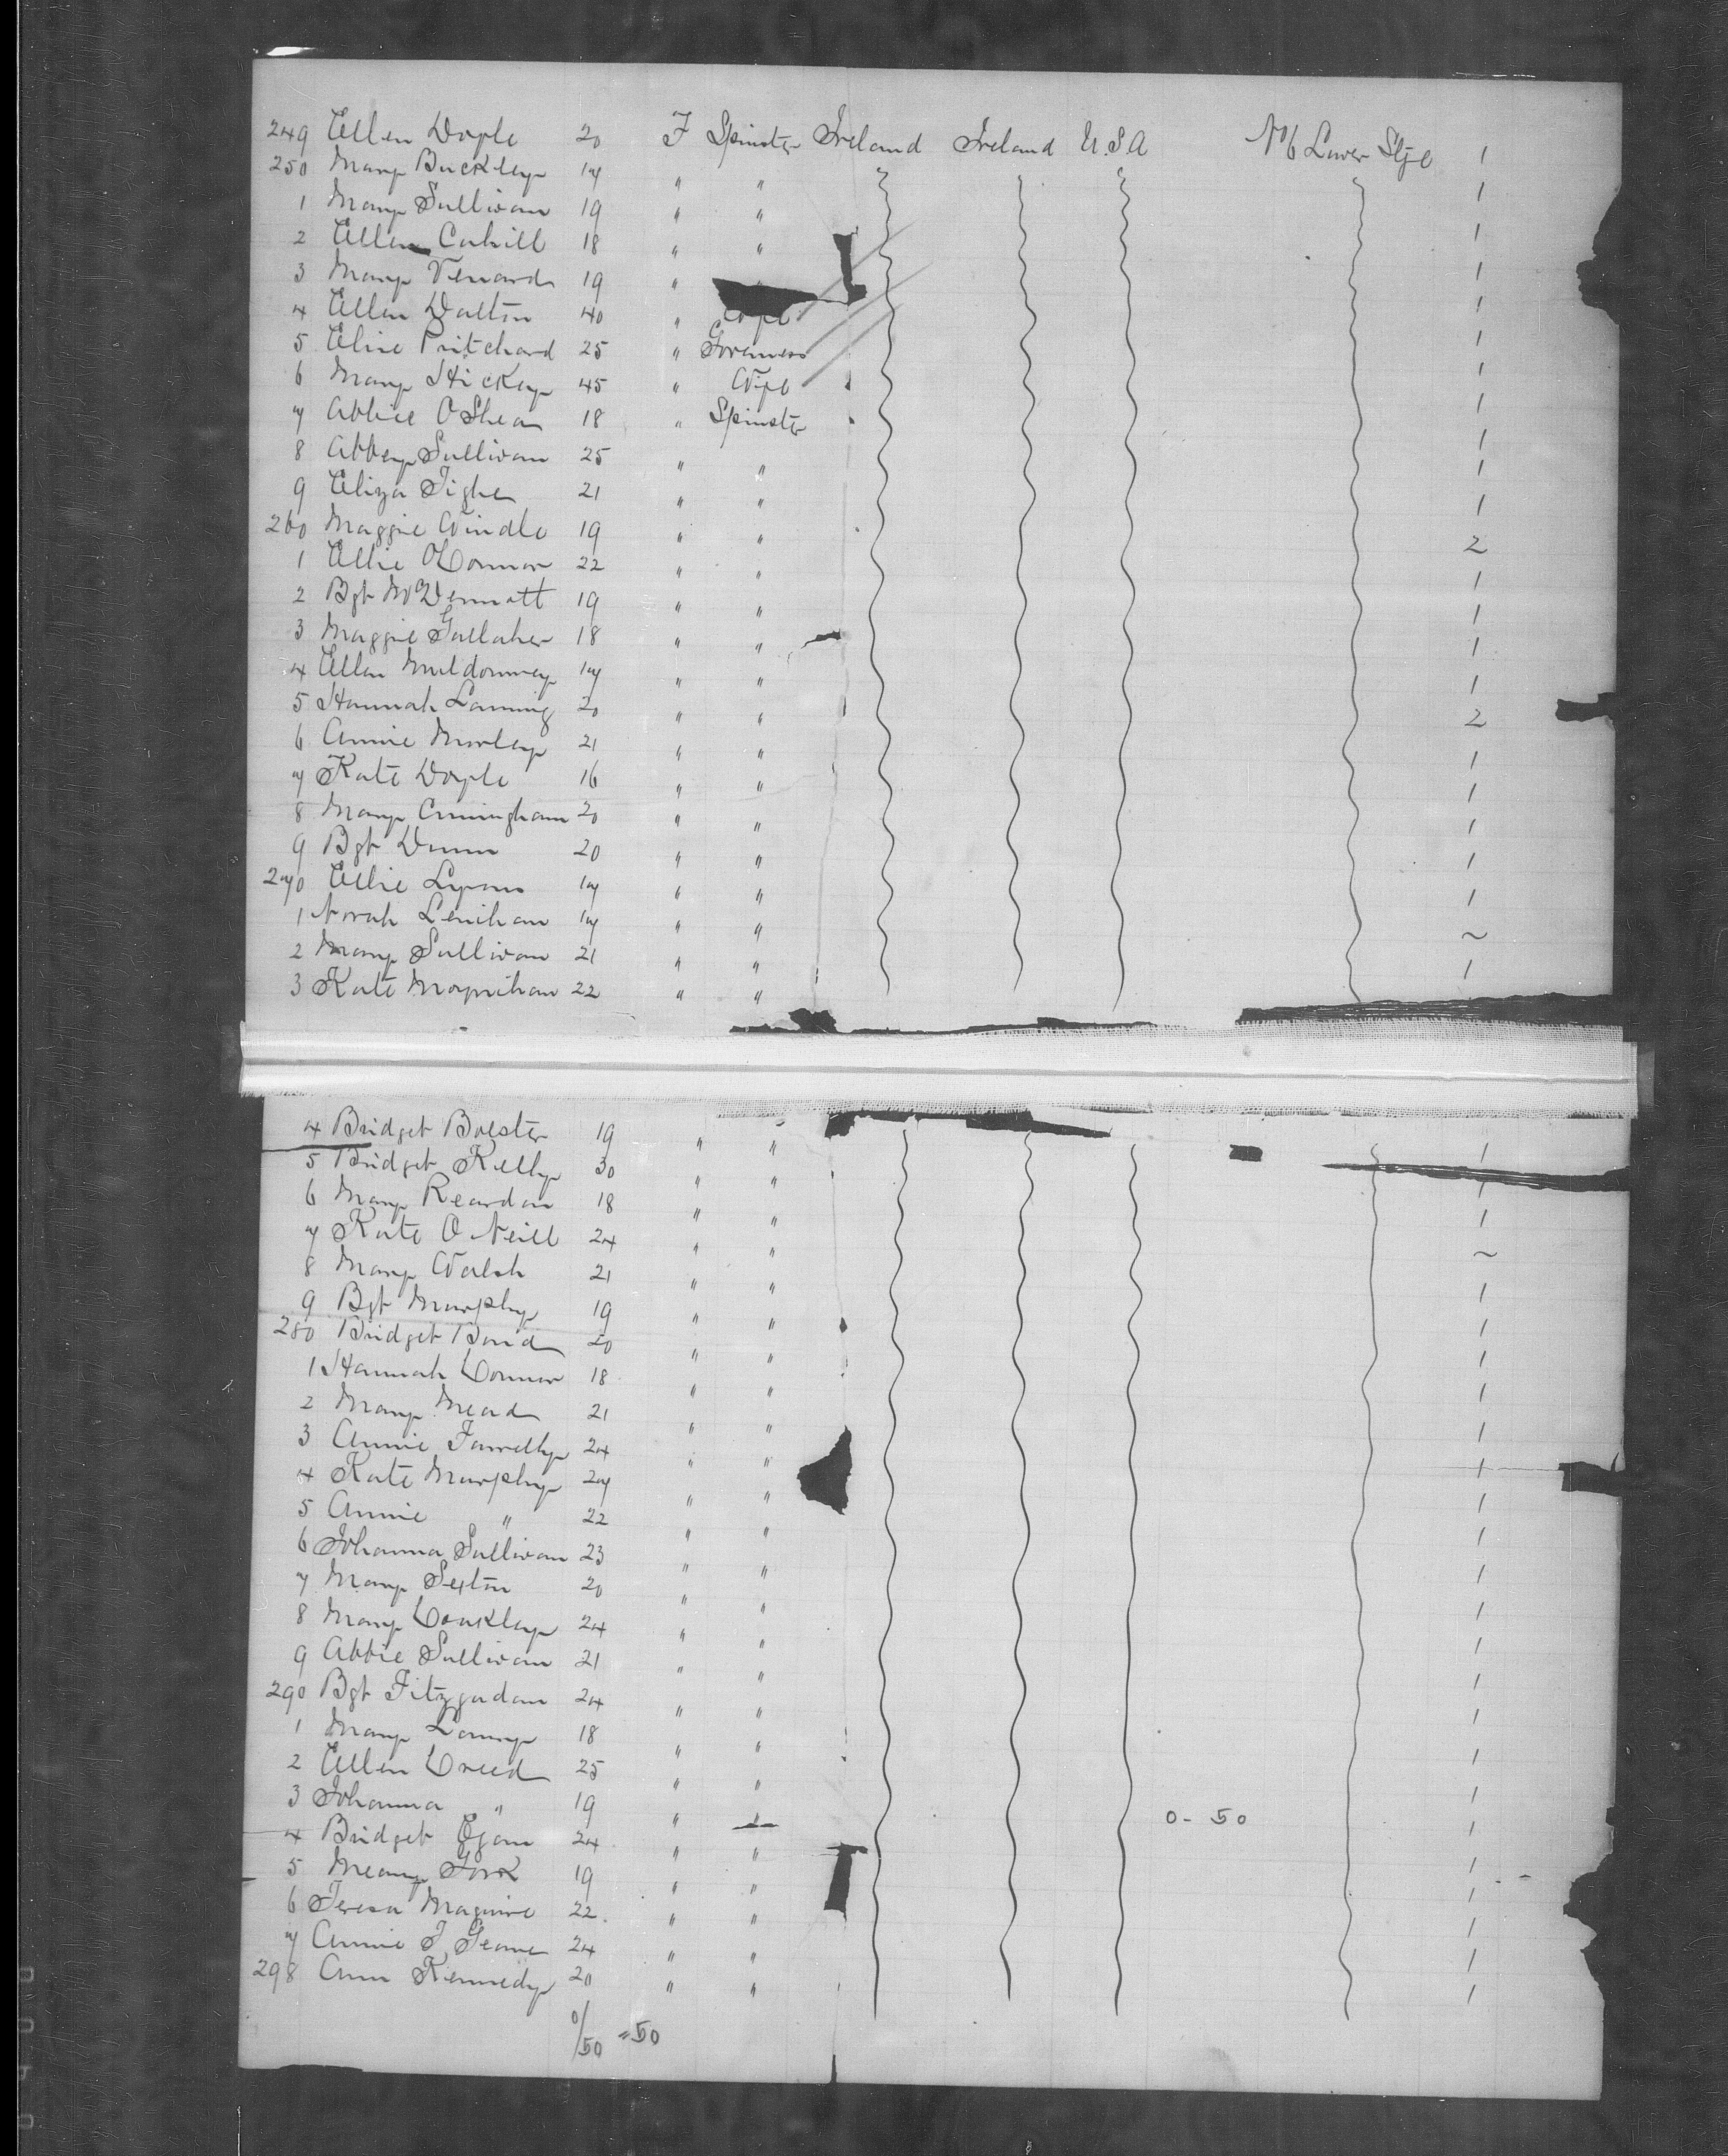 249 Ellen Doyle 20 F Spinster Ireland Ireland U.S.A N°6 Lower Stge 1
250 Mary Buckley 17 " " 1
1 Mary Sullivan 19 " " 1
2 Ellen Cahill 18 " " 1
3 Mary Venard 19 " 1
4 Ellen Dalton 40 " Wife 1
5 Elise Pritchard 25 " Governess 1
6 Mary Hickey 45 " Wife 1
7 Abbie O Shea 18 " Spinster 1
8 Abbey Sullivan 25 " " 1
9 Eliza Tighe 21 " " 1
260 Maggie Windle 19 " " 2
1 Ellie O'Connor 22 " " 1
2 Bgt McDermott 19 " " 1
3 Maggie Gallaher 18 " " 1
4 Ellen Muldowney 17 " " 1
5 Hannah Lanning 20 " " 2
6 Annie Morley 21 " " 1
7 Kate Doyle 16 " " 1
8 Mary Cunningham 20 " " 1
9 Bgt Dunn 20 " " 1
270 Ellie Lyons 17 " " 1
1 Norah Lenihan 17 " " ~
2 Mary Sullivan 21 " " 1
3 Kate Moynihan 22 " "
4 Bridget Bolster 19 " " 1
5 Bridget Kelly 30 " " 1
6 Mary Reardon 18 " " 1
7 Kate O Neill 24 " " ~
8 Mary Walsh 21 " " 1
9 Bgt Murphy 19 " " 1
280 Bridget 20 " " 1
1 Hannah Connor 18 " " 1
2 Mary Mead 21 " " 1
3 Annie Farrelly 24 " " 1
4 Kate Murphy 27 " " 1
5 Annie " 22 " " 1
6 Johanna Sullivan 23 " " 1
7 Mary Sexton 20 " " 1
8 Mary Coakley 24 " " 1
9 Abbie Sullivan 21 " " 1
290 Bgt 24 " " 1
1 Mary 18 " " 1
2 Ellen Creed 25 " " 1
3 Johanna " 19 " " 0-50 1
4 Bridget Egan 24 " " 1
5 19 " " 1
6 Teresa Maguire 22 " " 1
7 Annie 24 " " 1
298 Ann Kennedy 20 " " 1
0/50 = 50